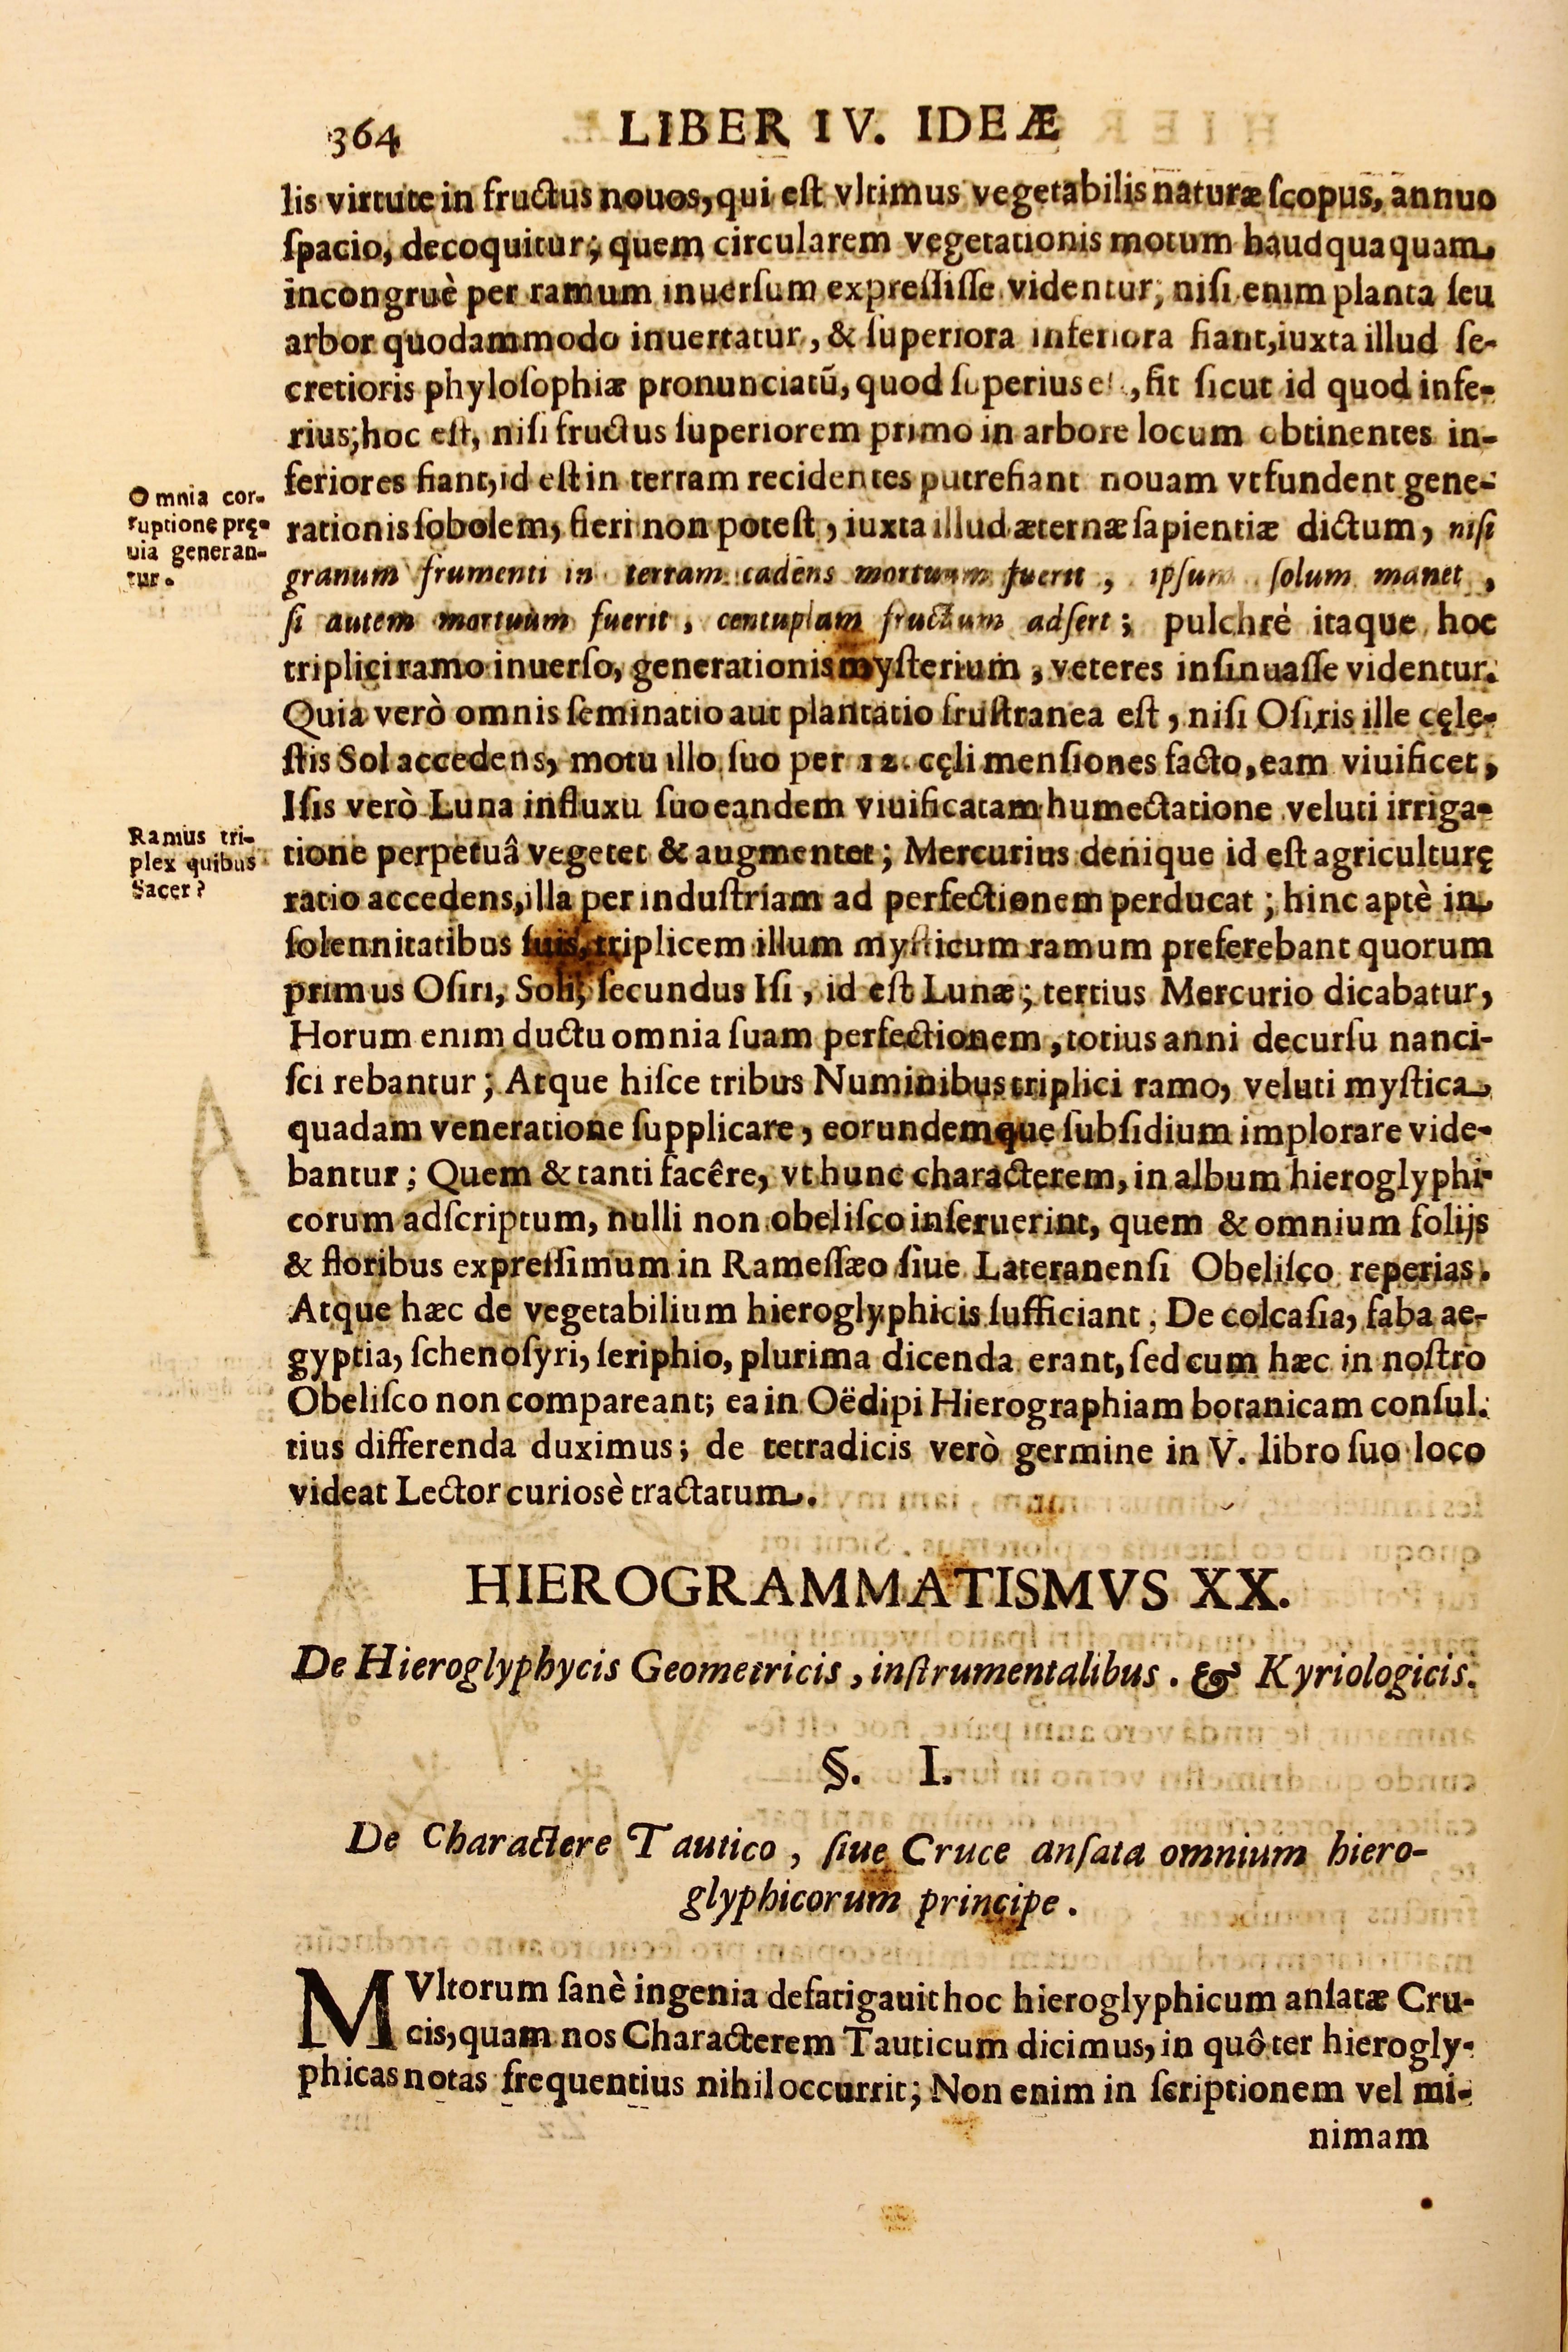 364 LIBER IV. IDEÆ
lis virtute in fructus nouos, qui est vltimus vegetabilis naturæ scopus, annuo
spacio, decoquitur; quem circularem vegetationis motum haudquaquam
incongruè per ramum inuersum expressisse videntur; nisi enim planta seu
arbor quodammodo inuertatur, & superiora inferiora fiant, iuxta illud se-
cretioris phylosophiæ pronunciatũ, quod superius, fit sicut id quod infe-
rius; hoc est, nisi fructus superiorem primo in arbore locum obtinentes in-
feriores fiant, id est in terram recidentes putrefiant nouam vtfundent gene-
rationis sobolem, fieri non potest, iuxta illud æternæ sapientiæ dictum, nisi
granum frumenti in terram cadens mortuum fuerit, ipsum solum manet,
si autem mortuum fuerit, centuplam fructum adfert; pulchrè itaque hoc
triplici ramo inuerso, generationis mysterium, veteres insinuasse videntur.
Quia verò omnis seminatio aut plantatio frustranea est, nisi Osiris ille cęle-
stis Sol accedens, motu illo suo per 12. cęli mensiones facto, eam viuificet,
Isis verò Luna influxu suo eandem viuificatam humectatione veluti irriga-
tione perpetuâ vegetet & augmentet; Mercurius denique id est agriculturę
ratio accedens, illa per industriam ad perfectionem perducat; hinc aptè in
solennitatibus suis, triplicem illum mysticum ramum preferebant quorum
primus Osiri, Soli; secundus Isi, id est Lunæ; tertius Mercurio dicabatur,
Horum enim ductu omnia suam perfectionem, totius anni decursu nanci-
sci rebantur; Atque hisce tribus Numinibus triplici ramo, veluti mystica
quadam veneratione supplicare, eorundemque subsidium implorare vide-
bantur; Quem & tanti facêre, vt hunc characterem, in album hieroglyphi-
corum adscriptum, nulli non obelisco inseruerint, quem & omnium folijs
& floribus expressimum in Ramessæo siue Lateranensi Obelisco reperias.
Atque hæc de vegetabilium hieroglyphicis sufficiant. De colcasia, faba ae-
gyptia, schenosyri, seriphio, plurima dicenda erant, sed cum hæc in nostro
Obelisco non compareant; ea in Oëdipi Hierographiam botanicam consul.
tius differenda duximus; de tetradicis verò germine in V. libro suo loco
videat Lector curiosè tractatum.
Omnia cor-
ruptione prę-
uia generan-
tur.
Ramus tri-
plex quibus
Sacer?
HIEROGRAMMATISMVS XX.
De Hieroglyphycis Geometricis, instrumentalibus. & Kyriologicis.
§. I.
De Charactere Tautico, siue Cruce ansata omnium hiero-
glyphicorum principe.
MVltorum sanè ingenia defatigauit hoc hieroglyphicum ansatæ Cru-
cis, quam nos Characterem Tauticum dicimus, in quô ter hierogly-
phicas notas frequentius nihil occurrit; Non enim in scriptionem vel mi-
nimam